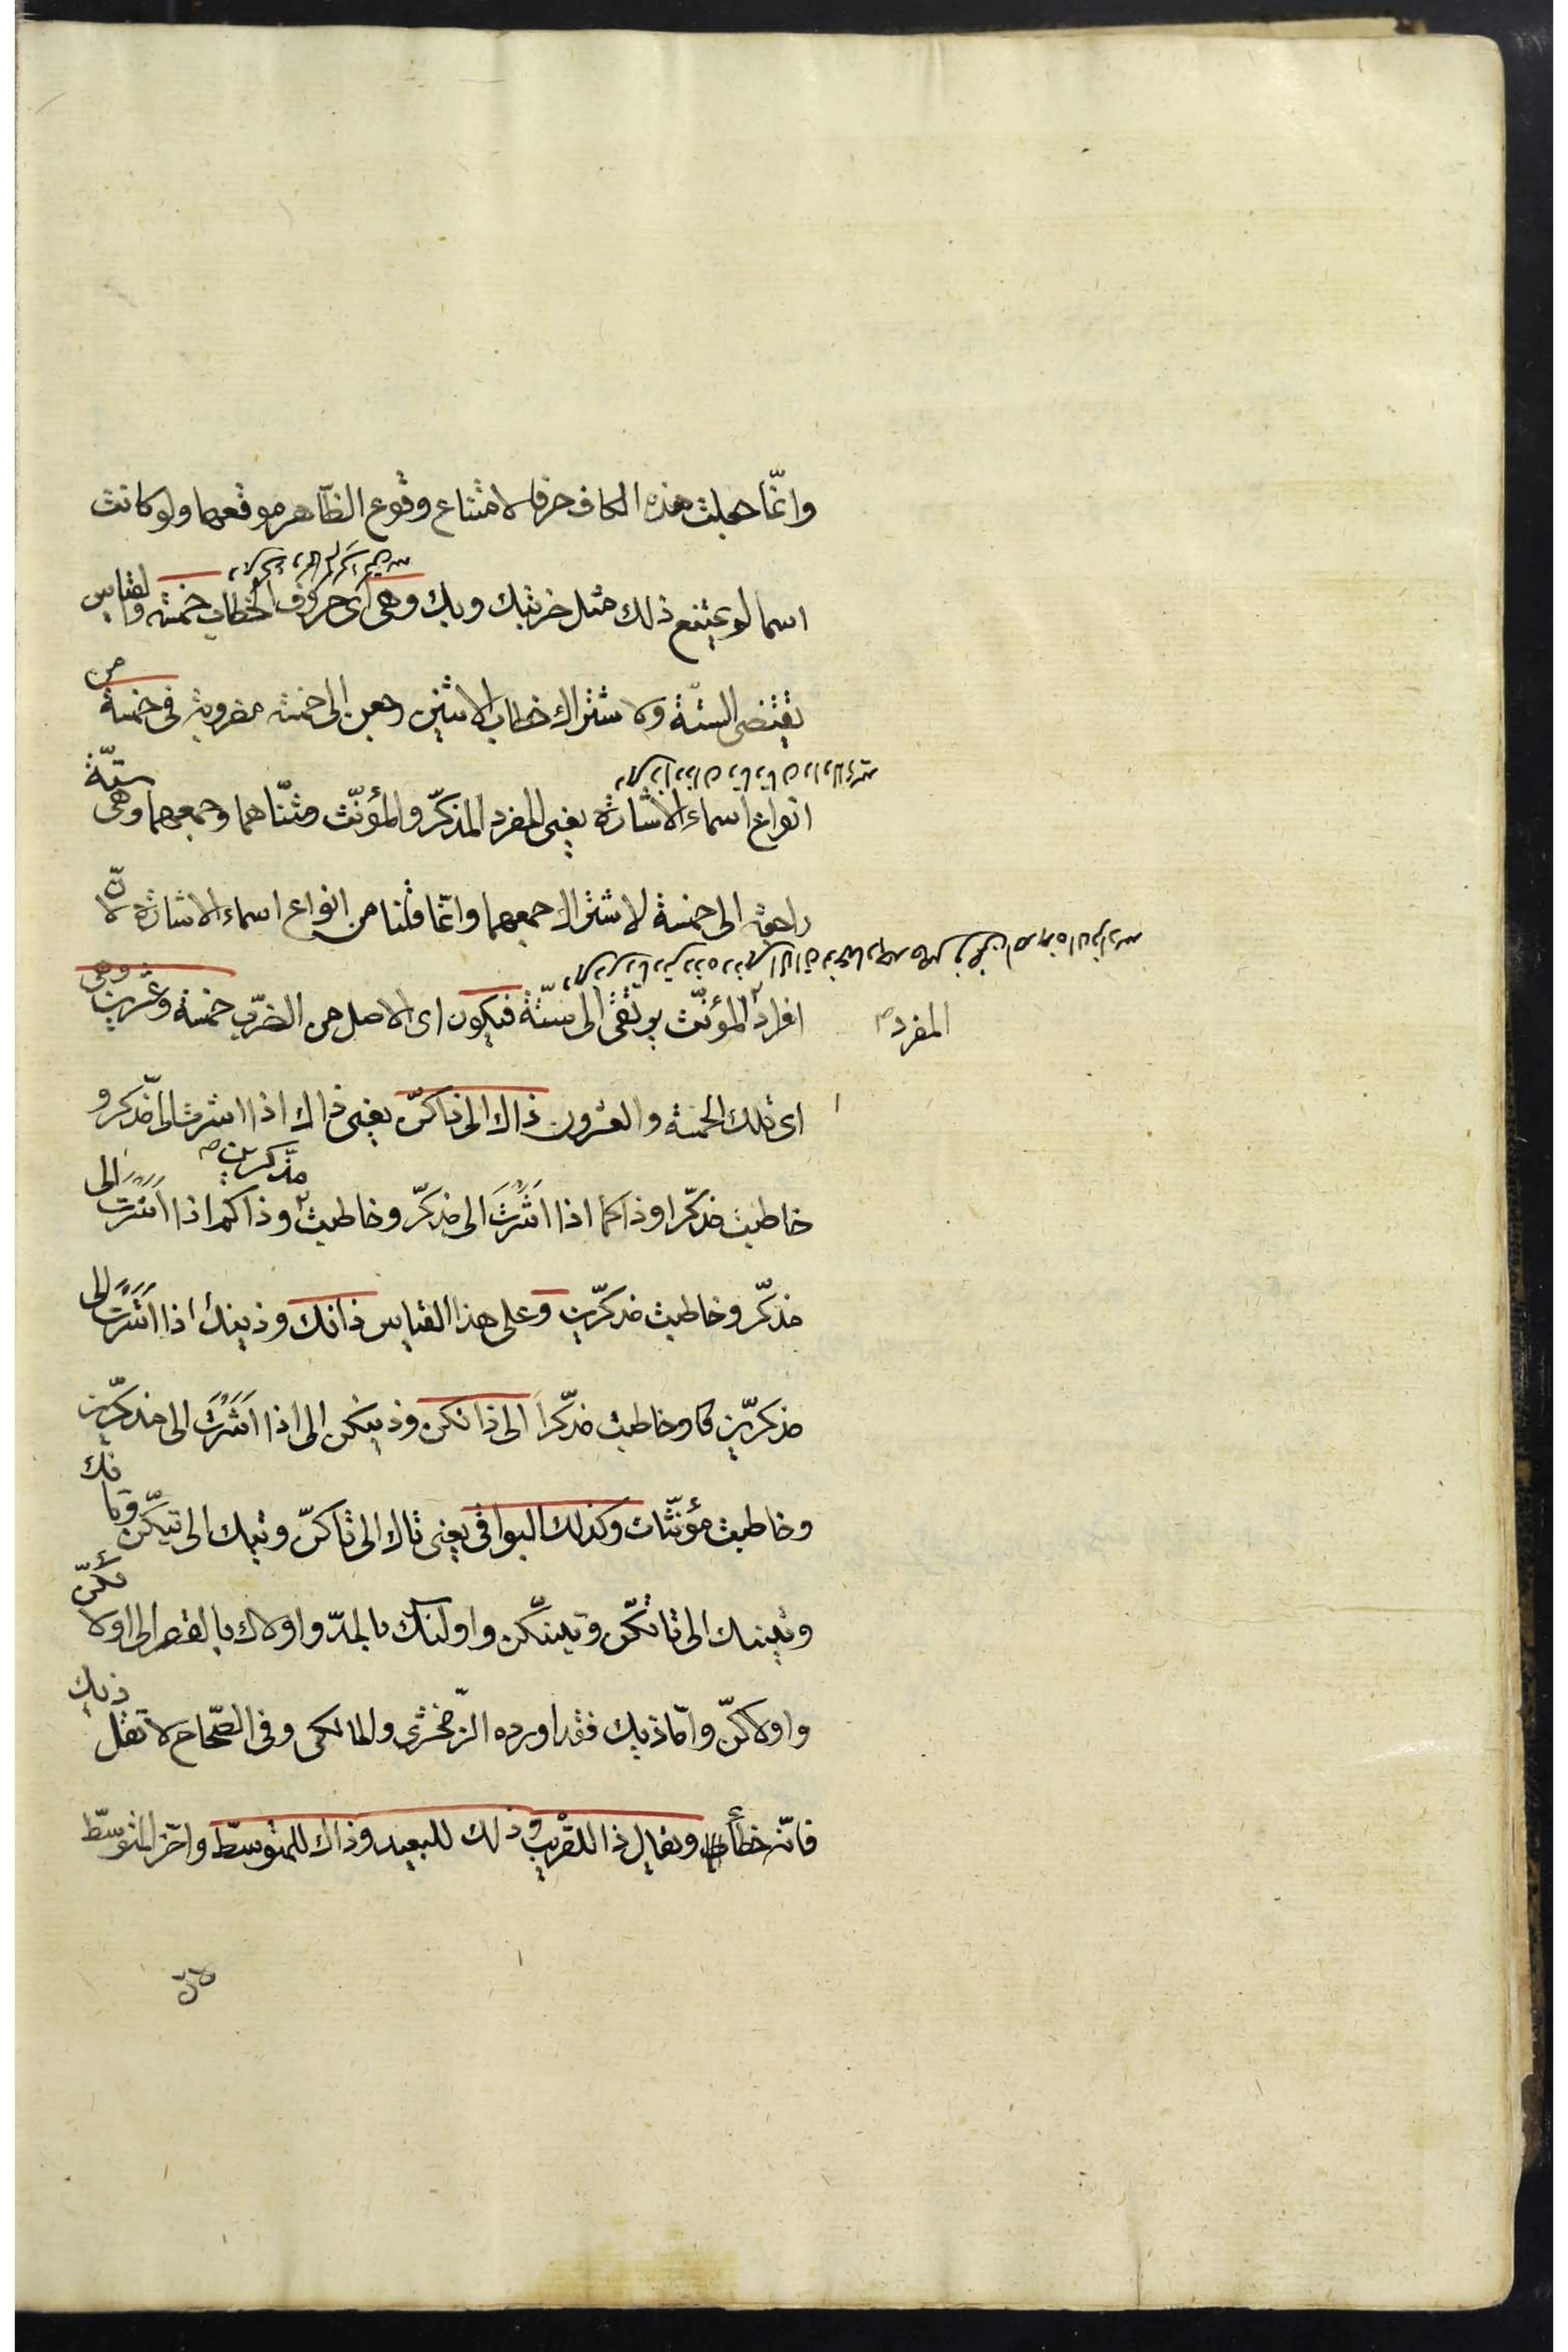 وانّما جعلت هذه الكاف حرفا لامتناع وقوع الظّاهر موقعها ولو كانت
اسما لم يمتنع ذلك مثل ضربتك وبك وهى اى حروف الخطاب خمسة والقياس
يقتضى الستّة ولاشتراك خطاب الاثنين رجعن الى خمسة مضروبة فى خمسة من
انواع اسماء الاشارة يعنى المفرد المذكّر والمؤنّث ومثنّاهما وجمعهما وهى ستّة
راجعة الى خمسة لاشتراك جمعهما وانّما قلنا من انواع اسماء الاشارة لانّ
المفرد
افراد المؤنّث يرتقى الى ستّة فيكون اى الاصل من الضرب خمسة وعشرين وهى
اى تلك الخمسة والعشرون ذاك الى ذاكنّ يعنى ذاك اذا اشرت الى مذكر و
مذكرين
خاطبت مذكّرا وذاكما اذا اشَرْتَ الى مذكّر وخاطبت وذاكم اذا اَشَرْتَ الى
مذكّر وخاطبت مذكرّين وعلى هذا القياس ذانك وذينك اذا اَشَرْتَ الى
مذكرّين وخاطبت مذكّرا الى ذانكن وذينكن الى اذا اَشَرْتَ الى مذكرّين
وخاطبت مؤنّثات وكذلك البواقى يعنى تاك الى تاكنّ وتيك الى تيكّن وتانك
وتينك الى تانكّن وتينكّن واولئك بالمدّ واولاك بالقصر الى اولائكنّ
واولاكنّ وامّا ذيك فقد اورده الزّمخشرى والمالكى وفى الصّحاح لا تقل ذيك
فانّه خطأ ويقال ذا للقريب وذلك للبعيد وذاك للمتوسّط واخّر المتوسّط
لانّ